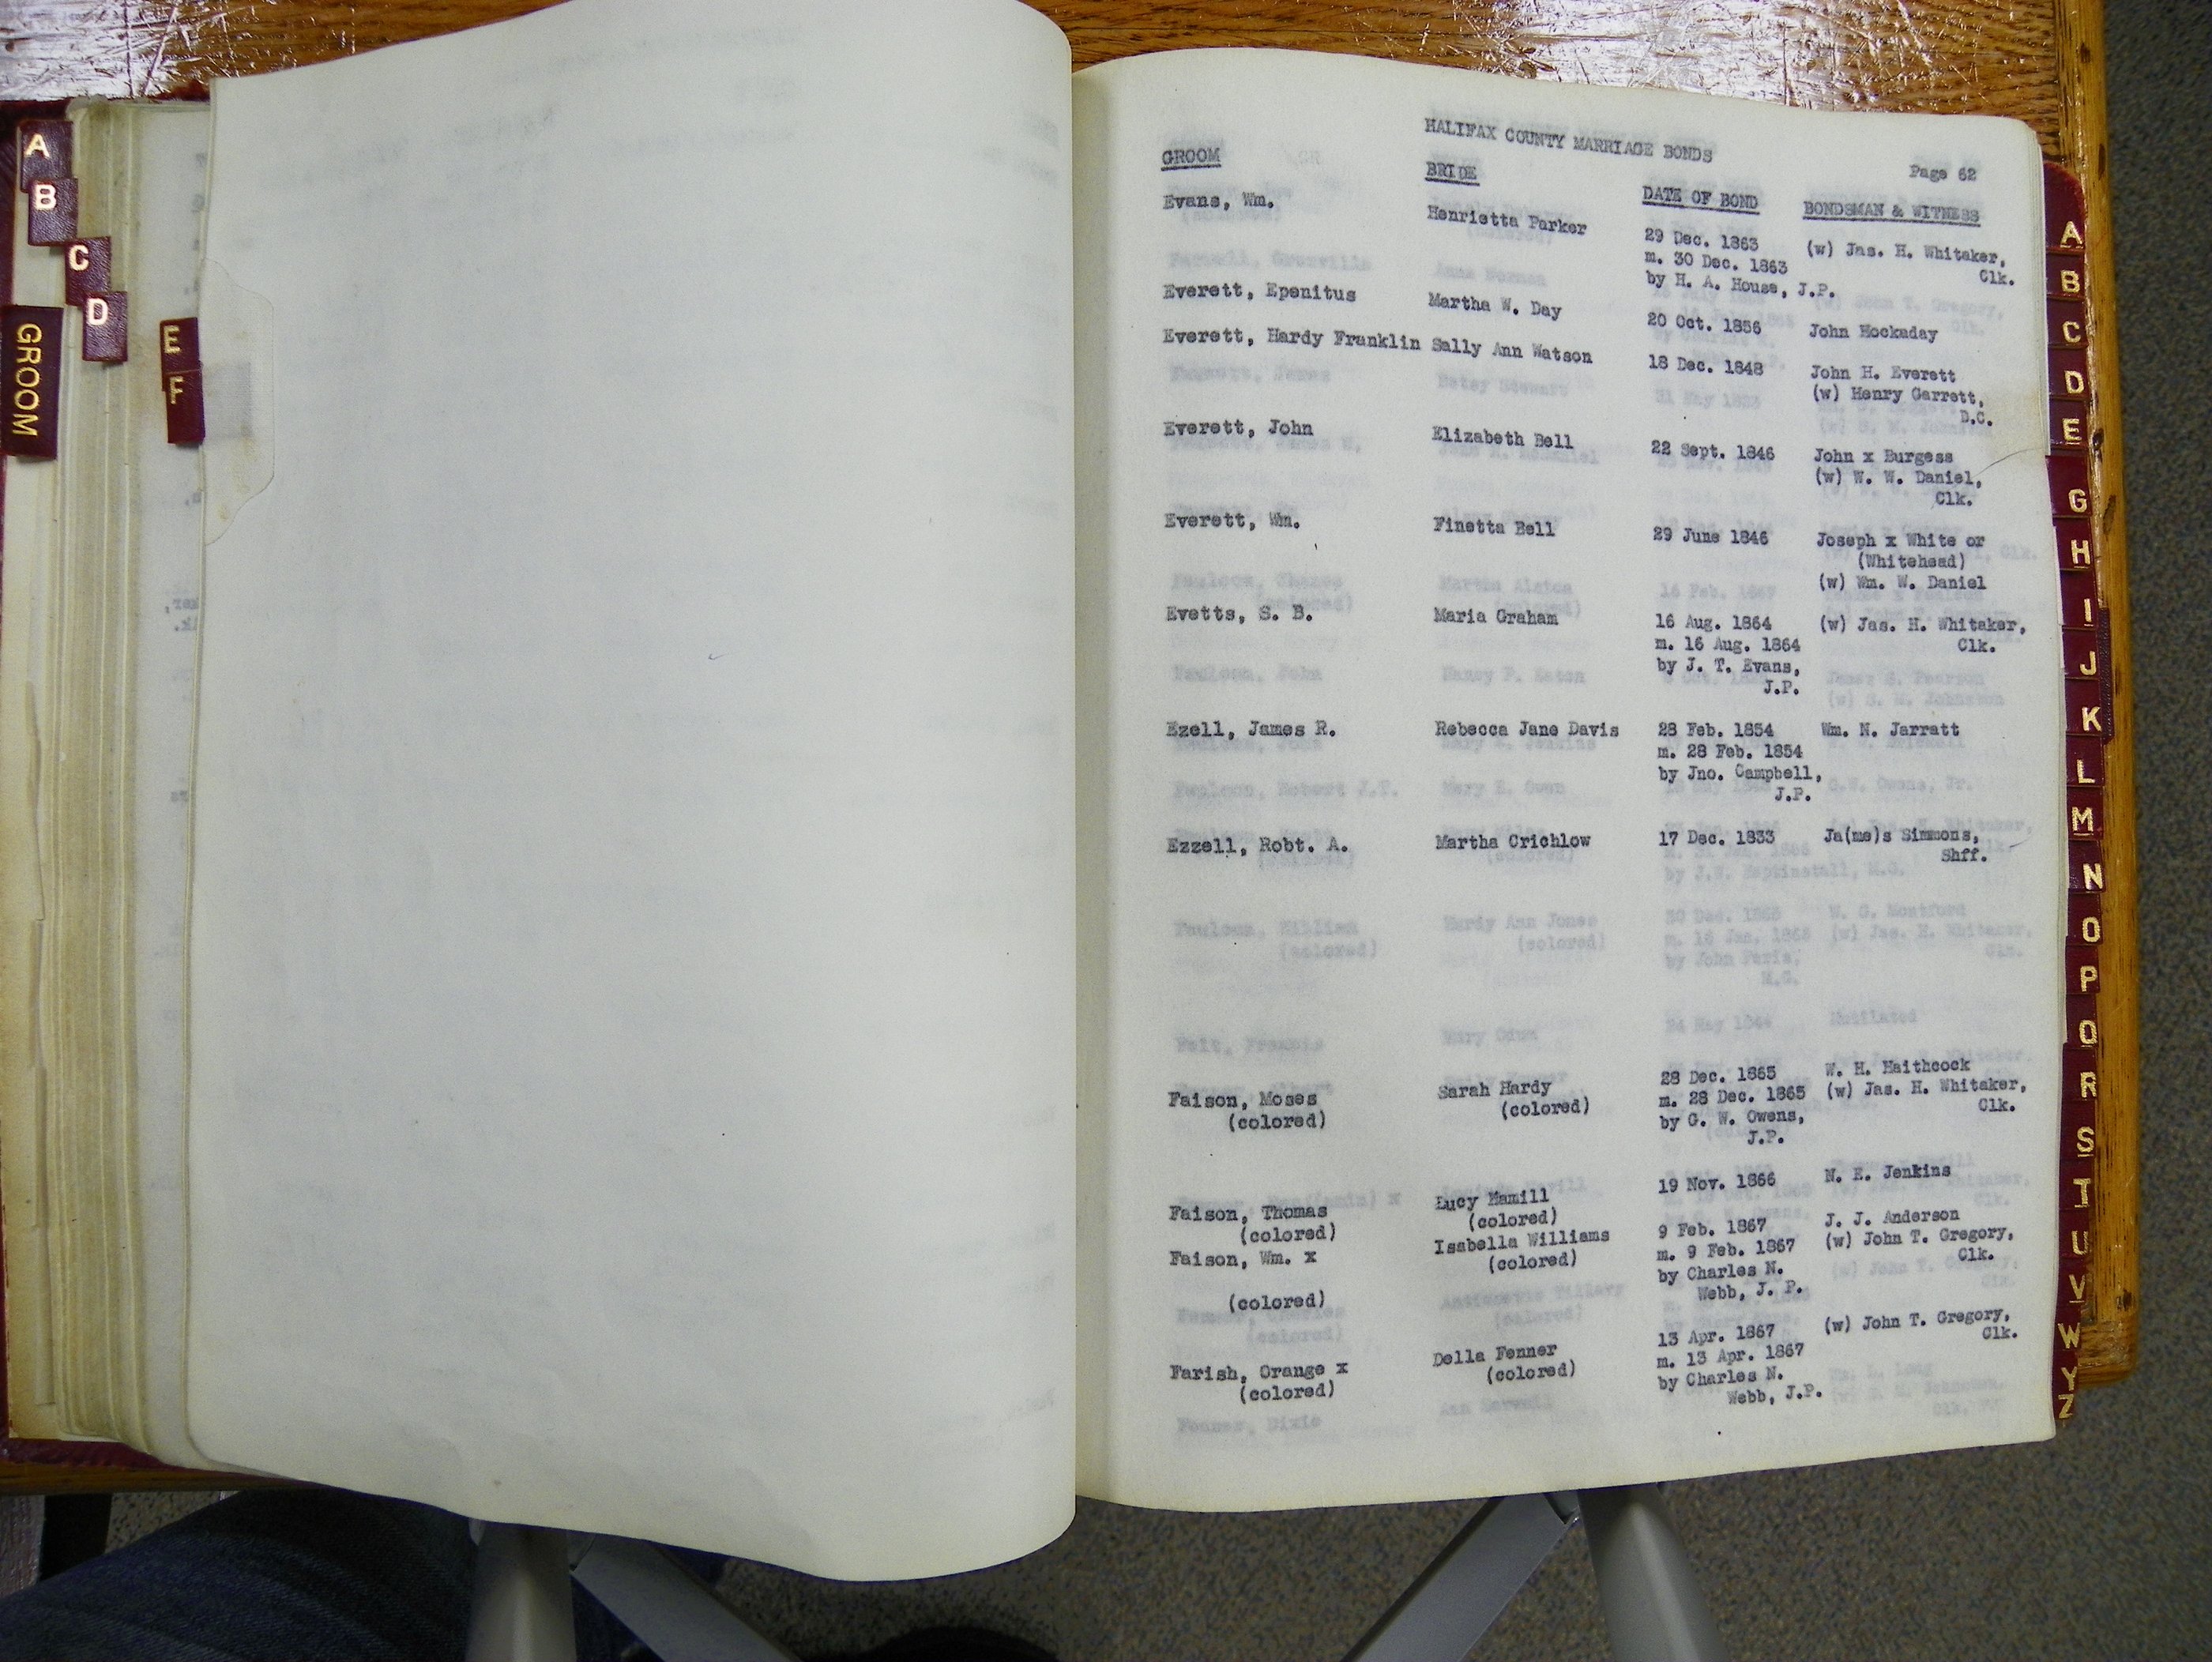 HALIFAX COUNTY MARRIAGE BONDS
Page 62
GROOM BRIDE DATE OF BOND BONDSMAN & WITNESS
Evans, Wm. Henrietta Parker 29 Dec. 1863 (w) Jas. H. Whitaker,
m. 30 Dec. 1863 Clk.
by H. A. House, J.P.
Everett, Epenitus Martha W. Day 20 Oct. 1856 John Hockaday
Everett, Hardy Franklin Sally Ann Watson 18 Dec. 1848 John H. Everett
(w) Henry Garrett,
D.C.
Everett, John Elizabeth Bell 22 Sept. 1846 John x Burgess
(w) W. W. Daniel,
Clk.
Everett, Wm. Finetta Bell 29 June 1846 Joseph x White or
(Whitehead)
(w) Wm. W. Daniel
Evetts, S. B. Maria Graham 16 Aug. 1864 (w) Jas. H. Whitaker,
m. 16 Aug. 1864 Clk.
by J. T. Evans,
J.P.
Ezell, James R. Rebecca Jane Davis 28 Feb. 1854 Wm. N. Jarratt
m. 28 Feb. 1854
by Jno. Campbell,
J.P.
Ezzell, Robt. A. Martha Crichlow 17 Dec. 1833 Ja(me)s Simmons,
Shff.
Faison, Moses Sarah Hardy 28 Dec. 1865 W. H. Haithcock
(colored) (colored) m. 28 Dec. 1865 (w) Jas. H. Whitaker,
by G. W. Owens, Clk.
J.P.
Faison, Thomas Lucy Hamill 19 Nov. 1866 N. E. Jenkins
(colored) (colored)
Faison, Wm. x Isabella Williams 9 Feb. 1867 J. J. Anderson
(colored) (colored) m. 9 Feb. 1867 (w) John T. Gregory,
by Charles N. Clk.
Webb, J. P.
Farish, Orange x Della Fenner 13 Apr. 1867 (w) John T. Gregory,
(colored) (colored) m. 13 Apr. 1867 Clk.
by Charles N.
Webb, J.P.
A
B
C
D
E
F
GROOM
A
B
C
D
E
G
H
I
J
K
L
M
N
O
P
Q
R
S
T
U
V
W
Y
Z